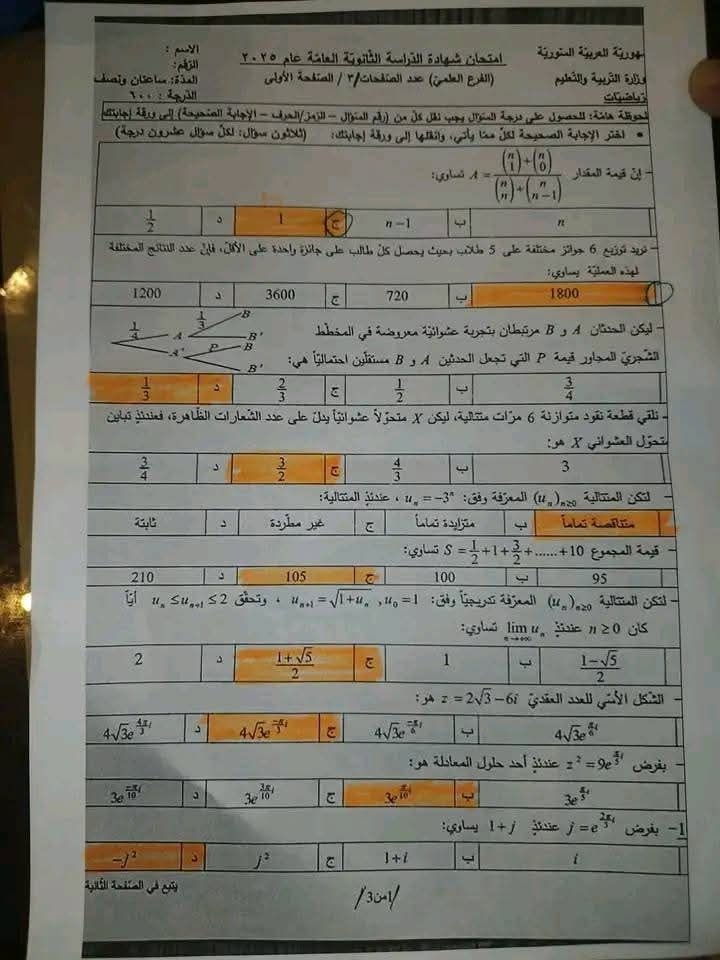 جمهوريّة العربيّة السّوريّة
وزارة التّربية والتّعليم
رياضيّات
امتحان شهادة الدّراسة الثّانويّة العامّة عام ٢٠٢٥
(الفرع العلميّ) عدد الصفحات/٣ / الصفحة الأولى
الاسم :
الرّقم:
المدّة: ساعتان ونصف
الدّرجة : ٦٠٠
لحوظة هامّة: للحصول على درجة السّؤال يجب نقل كلّ من (رقم السّؤال – الرّمز/الحرف – الإجابة الصّحيحة) إلى ورقة إجابتك
• اختر الإجابة الصحيحة لكلّ ممّا يأتي، وانقلها إلى ورقة إجابتك: (ثلاثون سؤال: لكلّ سؤال عشرون درجة)
– إنّ قيمة المقدار A = ((n 1)+(n 0))/((n n)+(n n−1)) تساوي:
n ب n−1 ج 1 د 1/2
نريد توزيع 6 جوائز مختلفة على 5 طلاب بحيث يحصل كلّ طالب على جائزة واحدة على الأقلّ، فإنّ عدد النتائج المختلفة
لهذه العمليّة يساوي:
1800 ب 720 ج 3600 د 1200
– ليكن الحدثان A و B مرتبطان بتجربة عشوائيّة معروضة في المخطّط
الشّجريّ المجاور قيمة P التي تجعل الحدثين A و B مستقلّين احتماليّاً هي:
1/4 A 1/3 B B' A' P B B'
3/4 ب 1/2 ج 2/3 د 1/3
– نلقي قطعة نقود متوازنة 6 مرّات متتالية، ليكن X متحوّلاً عشوائيّاً يدلّ على عدد الشّعارات الظّاهرة، فعندئذٍ تباين
متحوّل العشوائي X هو:
3 ب 4/3 ج 3/2 د 3/4
– لتكن المتتالية (uₙ)ₙ≥0 المعرّفة وفق: uₙ = −3ⁿ ، عندئذٍ المتتالية:
متناقصة تماماً ب متزايدة تماماً ج غير مطّردة د ثابتة
– قيمة المجموع S = 1/2+1+3/2+......+10 تساوي:
95 ب 100 ج 105 د 210
– لتكن المتتالية (uₙ)ₙ≥0 المعرّفة تدريجيّاً وفق: u₀ = 1 , uₙ₊₁ = √(1+uₙ) ، وتحقّق uₙ ≤ uₙ₊₁ ≤ 2 أيّاً
كان n ≥ 0 عندئذٍ lim uₙ n→+∞ تساوي:
(1−√5)/2 ب 1 ج (1+√5)/2 د 2
– الشّكل الأسّي للعدد العقديّ z = 2√3 − 6i هو:
4√3e^(π/6 i) ب 4√3e^(−π/6 i) ج 4√3e^(−π/3 i) د 4√3e^(4π/3 i)
– بفرض z² = 9e^(π/5 i) عندئذٍ أحد حلول المعادلة هو:
3e^(π/5 i) ب 3e^(π/10 i) ج 3e^(3π/10 i) د 3e^(−π/10 i)
1– بفرض j = e^(2π/3 i) عندئذٍ 1+j يساوي:
i ب 1+i ج j² د −j²
يتبع في الصّفحة الثّانية
/1من3/